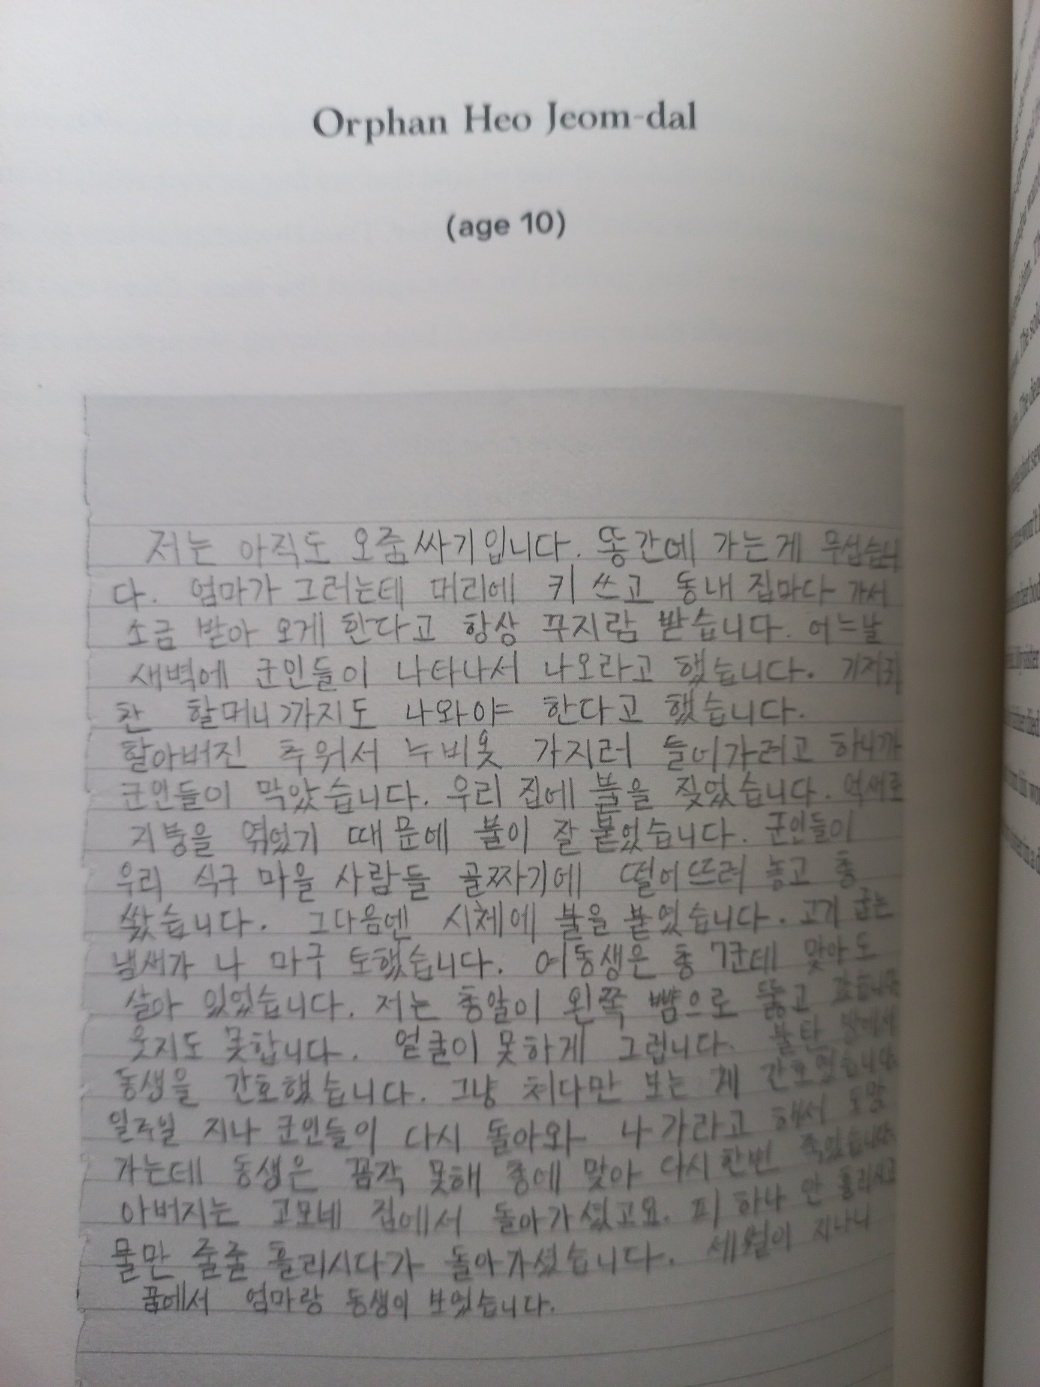 Orphan Heo Jeom-dal
(age 10)
저는 아직도 오줌싸기입니다. 똥간에 가는게 무섭습니
다. 엄마가 그러는테 머리에 키 쓰고 동내 집마다 가서
소금 받아 오게 한다고 항상 꾸지람 받습니다. 어느날
새벽에 군인들이 나타나서 나오라고 했습니다. 기저귀
찬 할머니까지도 나와야 한다고 했습니다.
할아버진 추워서 누비옷 가지러 들어가려고 하니까
군인들이 막았습니다. 우리 집에 불을 짖었습니다. 억새로
지붕을 엮었기 때문에 불이 잘 붙었습니다. 군인들이
우리 식구 마을 사람들 골짜기에 떨어뜨려 놓고 총
쐈습니다. 그다음엔 시체에 불을 붙었습니다. 고기 굽는
냄새가 나 마구 토했습니다. 여동생은 총 7군데 맞아도
살아 있었습니다. 저는 총알이 왼쪽 뺨으로 뚫고
웃지도 못합니다. 얼굴이 못하게 그럽니다. 불탄 방에서
동생을 간호했습니다. 그냥 처다만 보는 게 간호였습니다.
일주일 지나 군인들이 다시 돌아와 나가라고 해서 도망
가는데 동생은 꼼작 못해 총에 맞아 다시 한번 죽었습니다.
아버지는 고모네 집에서 돌아가셨고요. 피 하나 안 흘리시고
물만 줄줄 흘리시다가 돌아가셨습니다. 세월이 지나니
꿈에서 엄마랑 동생이 보였습니다.